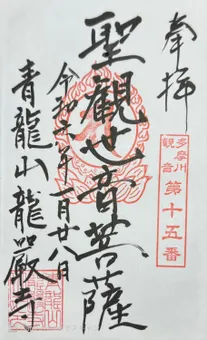 奉拝
多摩川
観音
第十五番
聖観世音菩薩
令和六年一月廿八日
青龍山龍巖寺